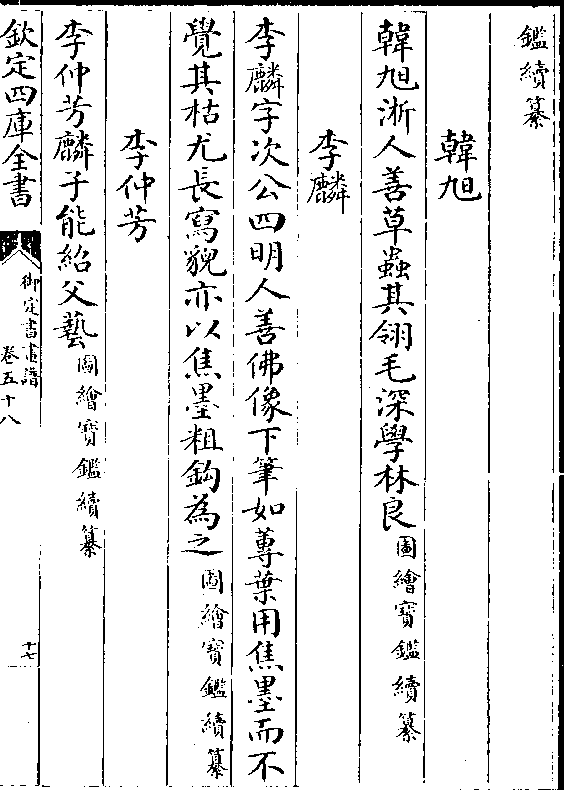 鑑續纂
韓旭
韓旭淅人善草蟲其翎毛深學林良圖繪寶鑑續纂
李麟
李麟字次公四明人善佛像下筆如蓴葉用焦墨而不
覺其枯尤長寫貌亦以焦墨粗鈎為之圖繪寶鑑續纂
李仲芳
李仲芳麟子能紹父藝圖繪寶鑑續纂
欽定四庫全書
御定書畫譜
卷五十八
十七